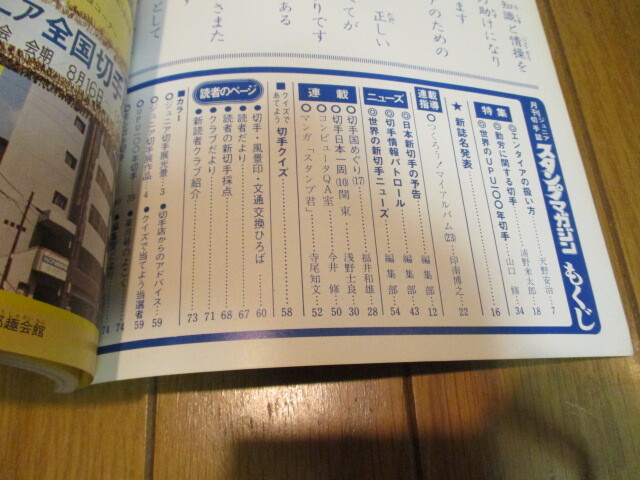 知識と情操を
の助けになり
ます
アのための
正しい
くてが
りです
ある
さまた
として
月刊ジュニア切手誌
スタンプマガジン
もくじ
特集
◎エンタイアの扱い方 天野安治…7
◎動労に関する切手 浦野米太郎…18
◎世界のUPU一〇〇年切手 山口修…34
16
★新誌名発表 22
連載指導
◎つくろう！マイアルバム(23) 印南博之…12
ニューズ
◎日本新切手の予告 編集部…43
◎切手情報パトロール 編集部…54
◎世界の新切手ニューズ 福井和雄…28
連載
◎切手国めぐり(17) 浅野士良…30
◎切手日本一周(10)関東 今井修…50
◎コンピュータQA室 52
◎マンガ「スタンプ君」 寺尾知文
■クイズであてよう 切手クイズ 58
読者のページ
●切手・風景印・文通交換ひろば 60
●読者だより 67
●読者の新切手採点 68
●クラブだより 71
●新読者クラブ紹介 73
■カラー
◎ジュニア切手展光景…3
◎ジュニア切手展作品…4
◎UPU一〇〇年切手…39
●切手店からのアドバイス…59
●クイズで当てよう当選者 59
74
74
ニア全国切手
会 会期 8月16日
会館